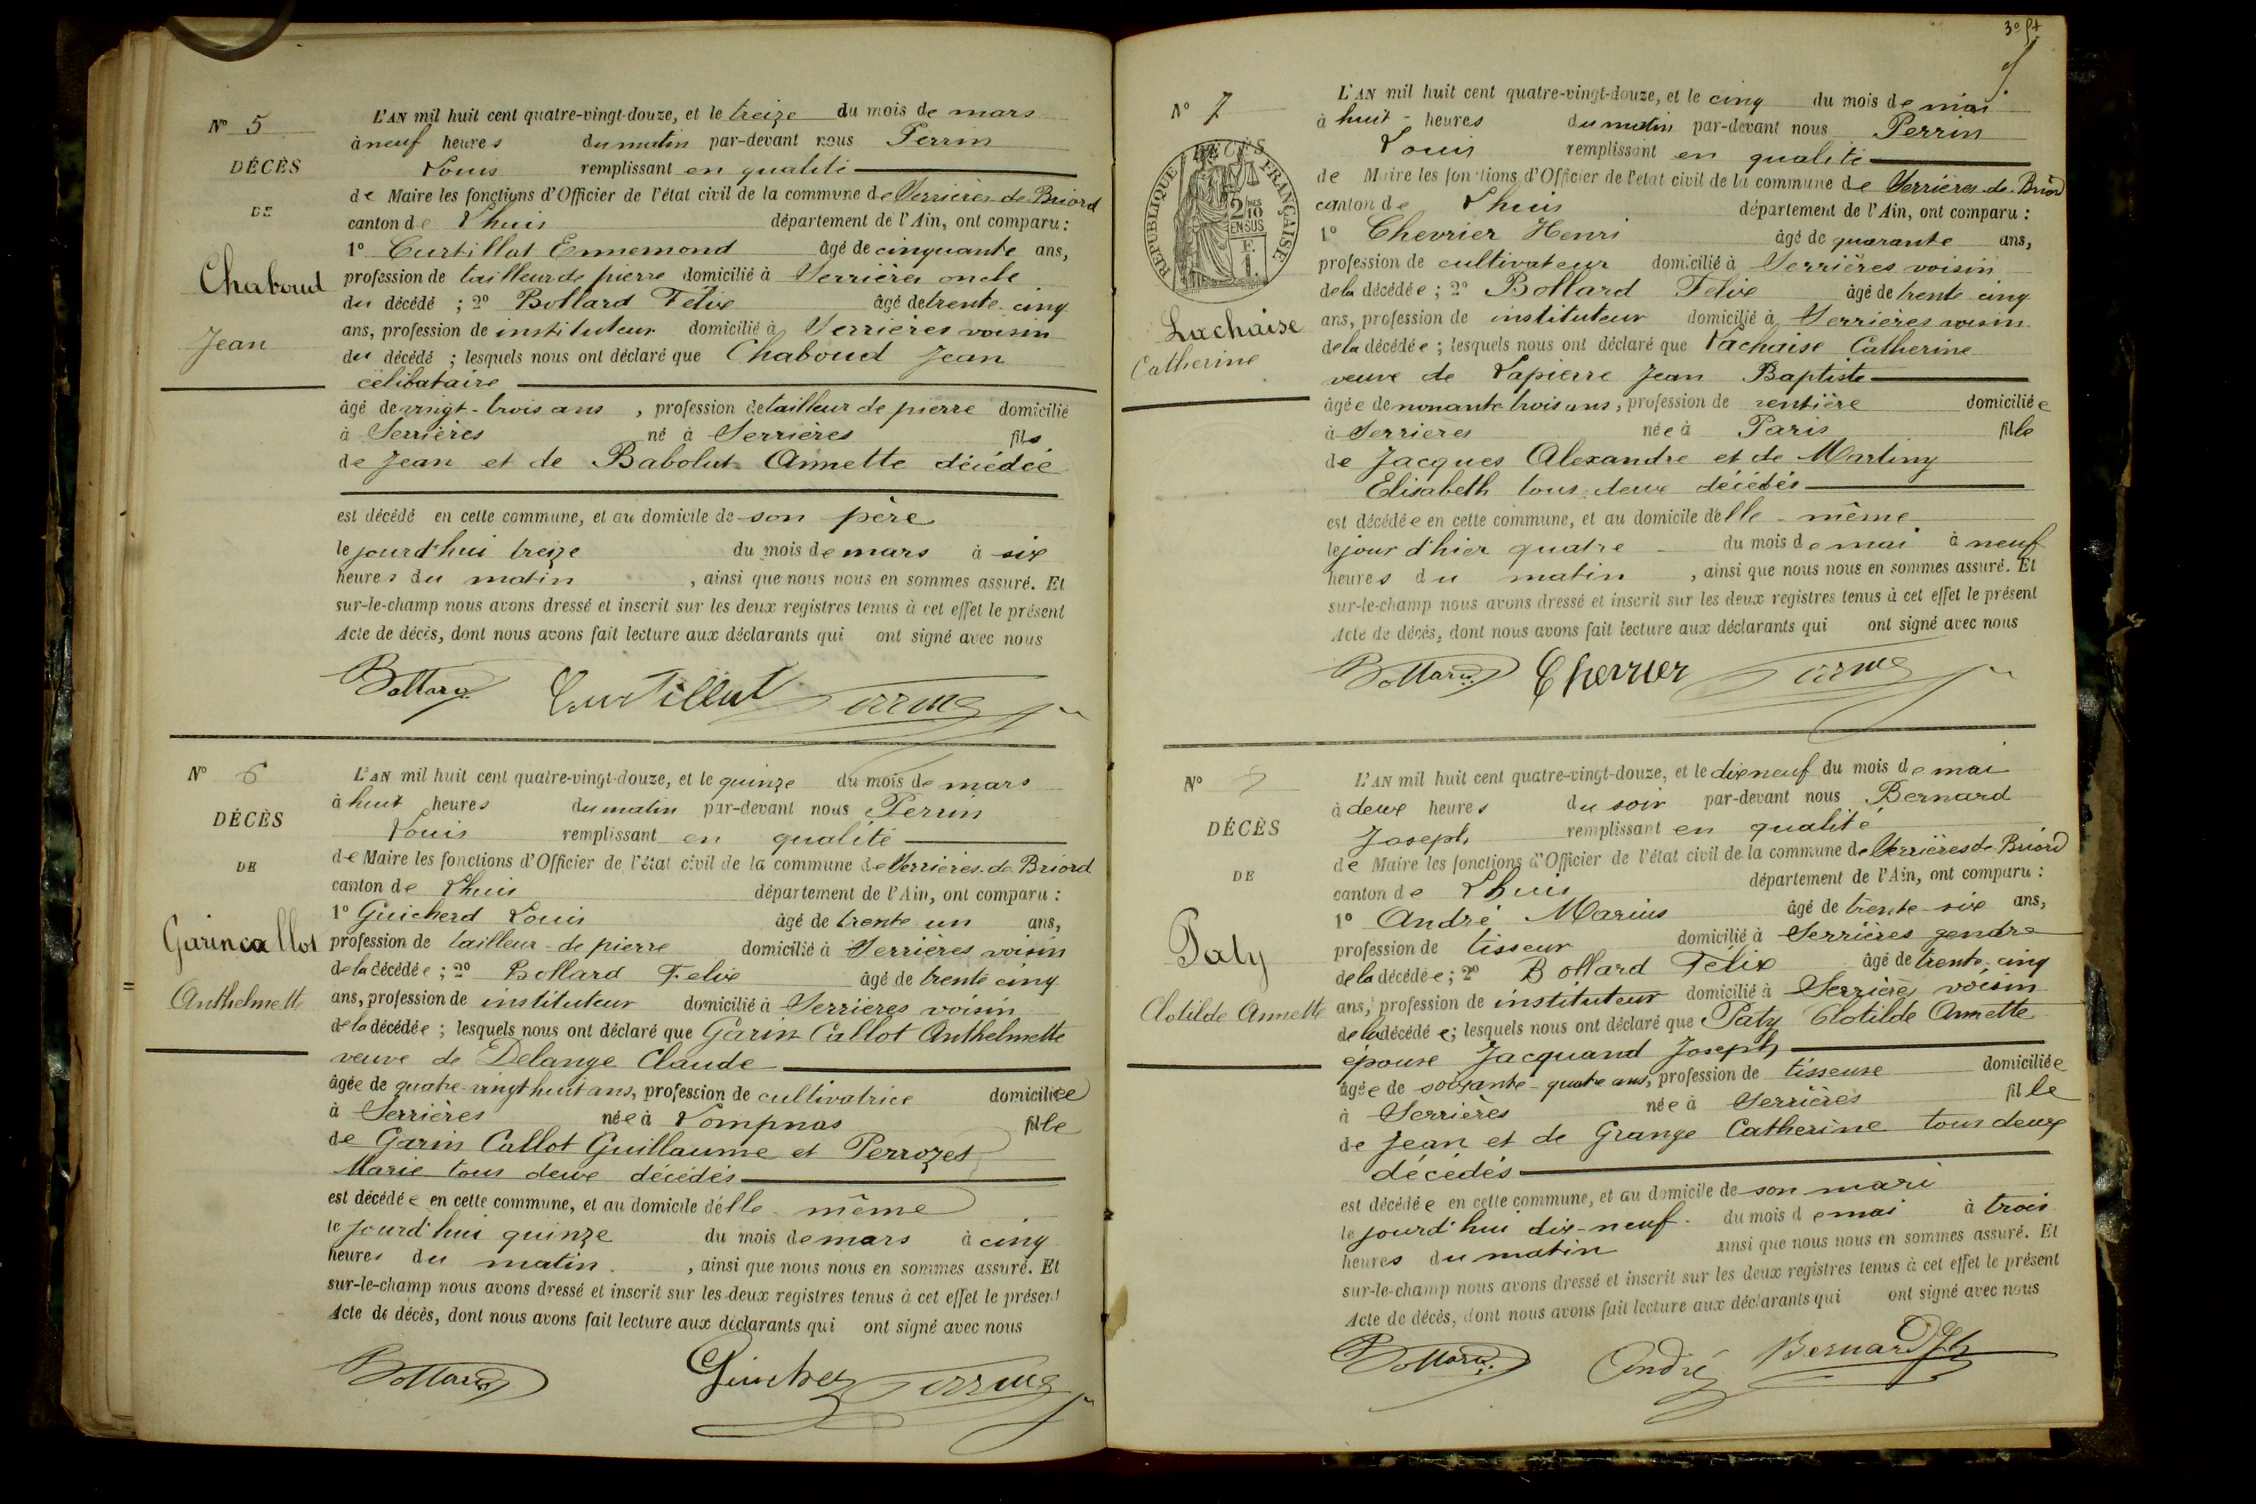 N° 5
DÉCÈS
DE
Chaboud
Jean
L'AN mil huit cent quatre-vingt-douze, et le treize du mois de mars
à neuf heures du matin par-devant nous Perrin
Louis remplissant en qualité
de Maire les fonctions d'Officier de l'état civil de la commune de Serrières-de-Briord
canton de Lhuis département de l'Ain, ont comparu :
1° Curtillat Ennemond âgé de cinquante ans,
profession de tailleur de pierre domicilié à Serrières oncle
du décédé ; 2° Bottard Félix âgé de trente-cinq
ans, profession de instituteur domicilié à Serrières voisin
du décédé ; lesquels nous ont déclaré que Chaboud Jean
célibataire
âgé de vingt-trois ans, profession de tailleur de pierre domicilié
à Serrières né à Serrières fils
de Jean et de Babolat Annette décédée
est décédé en cette commune, et au domicile de son père
le jourd'hui treize du mois de mars à six
heures du matin, ainsi que nous nous en sommes assuré. Et
sur-le-champ nous avons dressé et inscrit sur les deux registres tenus à cet effet le présent
Acte de décès, dont nous avons fait lecture aux déclarants qui ont signé avec nous
Bottard Curtillat Perrin
N° 6
DÉCÈS
DE
Garin callot
Anthelmette
L'AN mil huit cent quatre-vingt-douze, et le quinze du mois de mars
à huit heures du matin par-devant nous Perrin
Louis remplissant en qualité
de Maire les fonctions d'Officier de l'état civil de la commune de Serrières-de-Briord
canton de Lhuis département de l'Ain, ont comparu :
1° Guicherd Louis âgé de trente un ans,
profession de tailleur de pierre domicilié à Serrières voisin
de la décédée ; 2° Bottard Felix âgé de trente cinq
ans, profession de instituteur domicilié à Serrières voisin
de la décédée ; lesquels nous ont déclaré que Garin Callot Anthelmette
veuve de Delange Claude
âgée de quatre-vingt huit ans, profession de cultivatrice domiciliée
à Serrières née à Lompnas fille
de Garin Callot Guillaume et Perrozet
Marie tous deux décédés
est décédée en cette commune, et au domicile d'elle-même
le jourd'hui quinze du mois de mars à cinq
heures du matin, ainsi que nous nous en sommes assuré. Et
sur-le-champ nous avons dressé et inscrit sur les deux registres tenus à cet effet le présent
Acte de décès, dont nous avons fait lecture aux déclarants qui ont signé avec nous
Bottard Guicherd Perrin
N° 7
DÉCÈS
RÉPUBLIQUE FRANÇAISE
2/10 EN SUS
Lachaise
Catherine
L'AN mil huit cent quatre-vingt-douze, et le cinq du mois de mai
à huit heures du matin par-devant nous Perrin
Louis remplissant en qualité
de Maire les fonctions d'Officier de l'état civil de la commune de Serrières-de-Briord
canton de Lhuis département de l'Ain, ont comparu :
1° Chevrier Henri âgé de quarante ans,
profession de cultivateur domicilié à Serrières voisin
de la décédée ; 2° Bottard Felix âgé de trente cinq
ans, profession de instituteur domicilié à Serrières voisin
de la décédée ; lesquels nous ont déclaré que Lachaise Catherine
veuve de Lapierre Jean Baptiste
âgée de nonante trois ans, profession de rentière domiciliée
à Serrières née à Paris fille
de Jacques Alexandre et de Martiny
Elisabeth tous deux décédés
est décédée en cette commune, et au domicile d'elle-même
le jour d'hier quatre du mois de mai à neuf
heures du matin, ainsi que nous nous en sommes assuré. Et
sur-le-champ nous avons dressé et inscrit sur les deux registres tenus à cet effet le présent
Acte de décès, dont nous avons fait lecture aux déclarants qui ont signé avec nous
Bottard Chevrier Perrin
N°
DÉCÈS
DE
Paty
Clotilde Annette
L'AN mil huit cent quatre-vingt-douze, et le dix neuf du mois de mai
à deux heures du soir par-devant nous Bernard
Joseph remplissant en qualité
de Maire les fonctions d'Officier de l'état civil de la commune de Serrières de Briord
canton de Lhuis département de l'Ain, ont comparu :
1° André Marius âgé de trente-six ans,
profession de tisseur domicilié à Serrières gendre
de la décédée ; 2° Bottard Félix âgé de trente-cinq
ans, profession de instituteur domicilié à Serrières voisin
de la décédée ; lesquels nous ont déclaré que Paty Clotilde Annette
épouse Jacquand Joseph
âgée de soixante-quatre ans, profession de tisseuse domiciliée
à Serrières née à Serrières fille
de Jean et de Grange Catherine tous deux
décédés
est décédée en cette commune, et au domicile de son mari
le jourd'hui dix-neuf du mois de mai à trois
heures du matin ainsi que nous nous en sommes assuré. Et
sur-le-champ nous avons dressé et inscrit sur les deux registres tenus à cet effet le présent
Acte de décès, dont nous avons fait lecture aux déclarants qui ont signé avec nous
Bottard André Bernard Jh